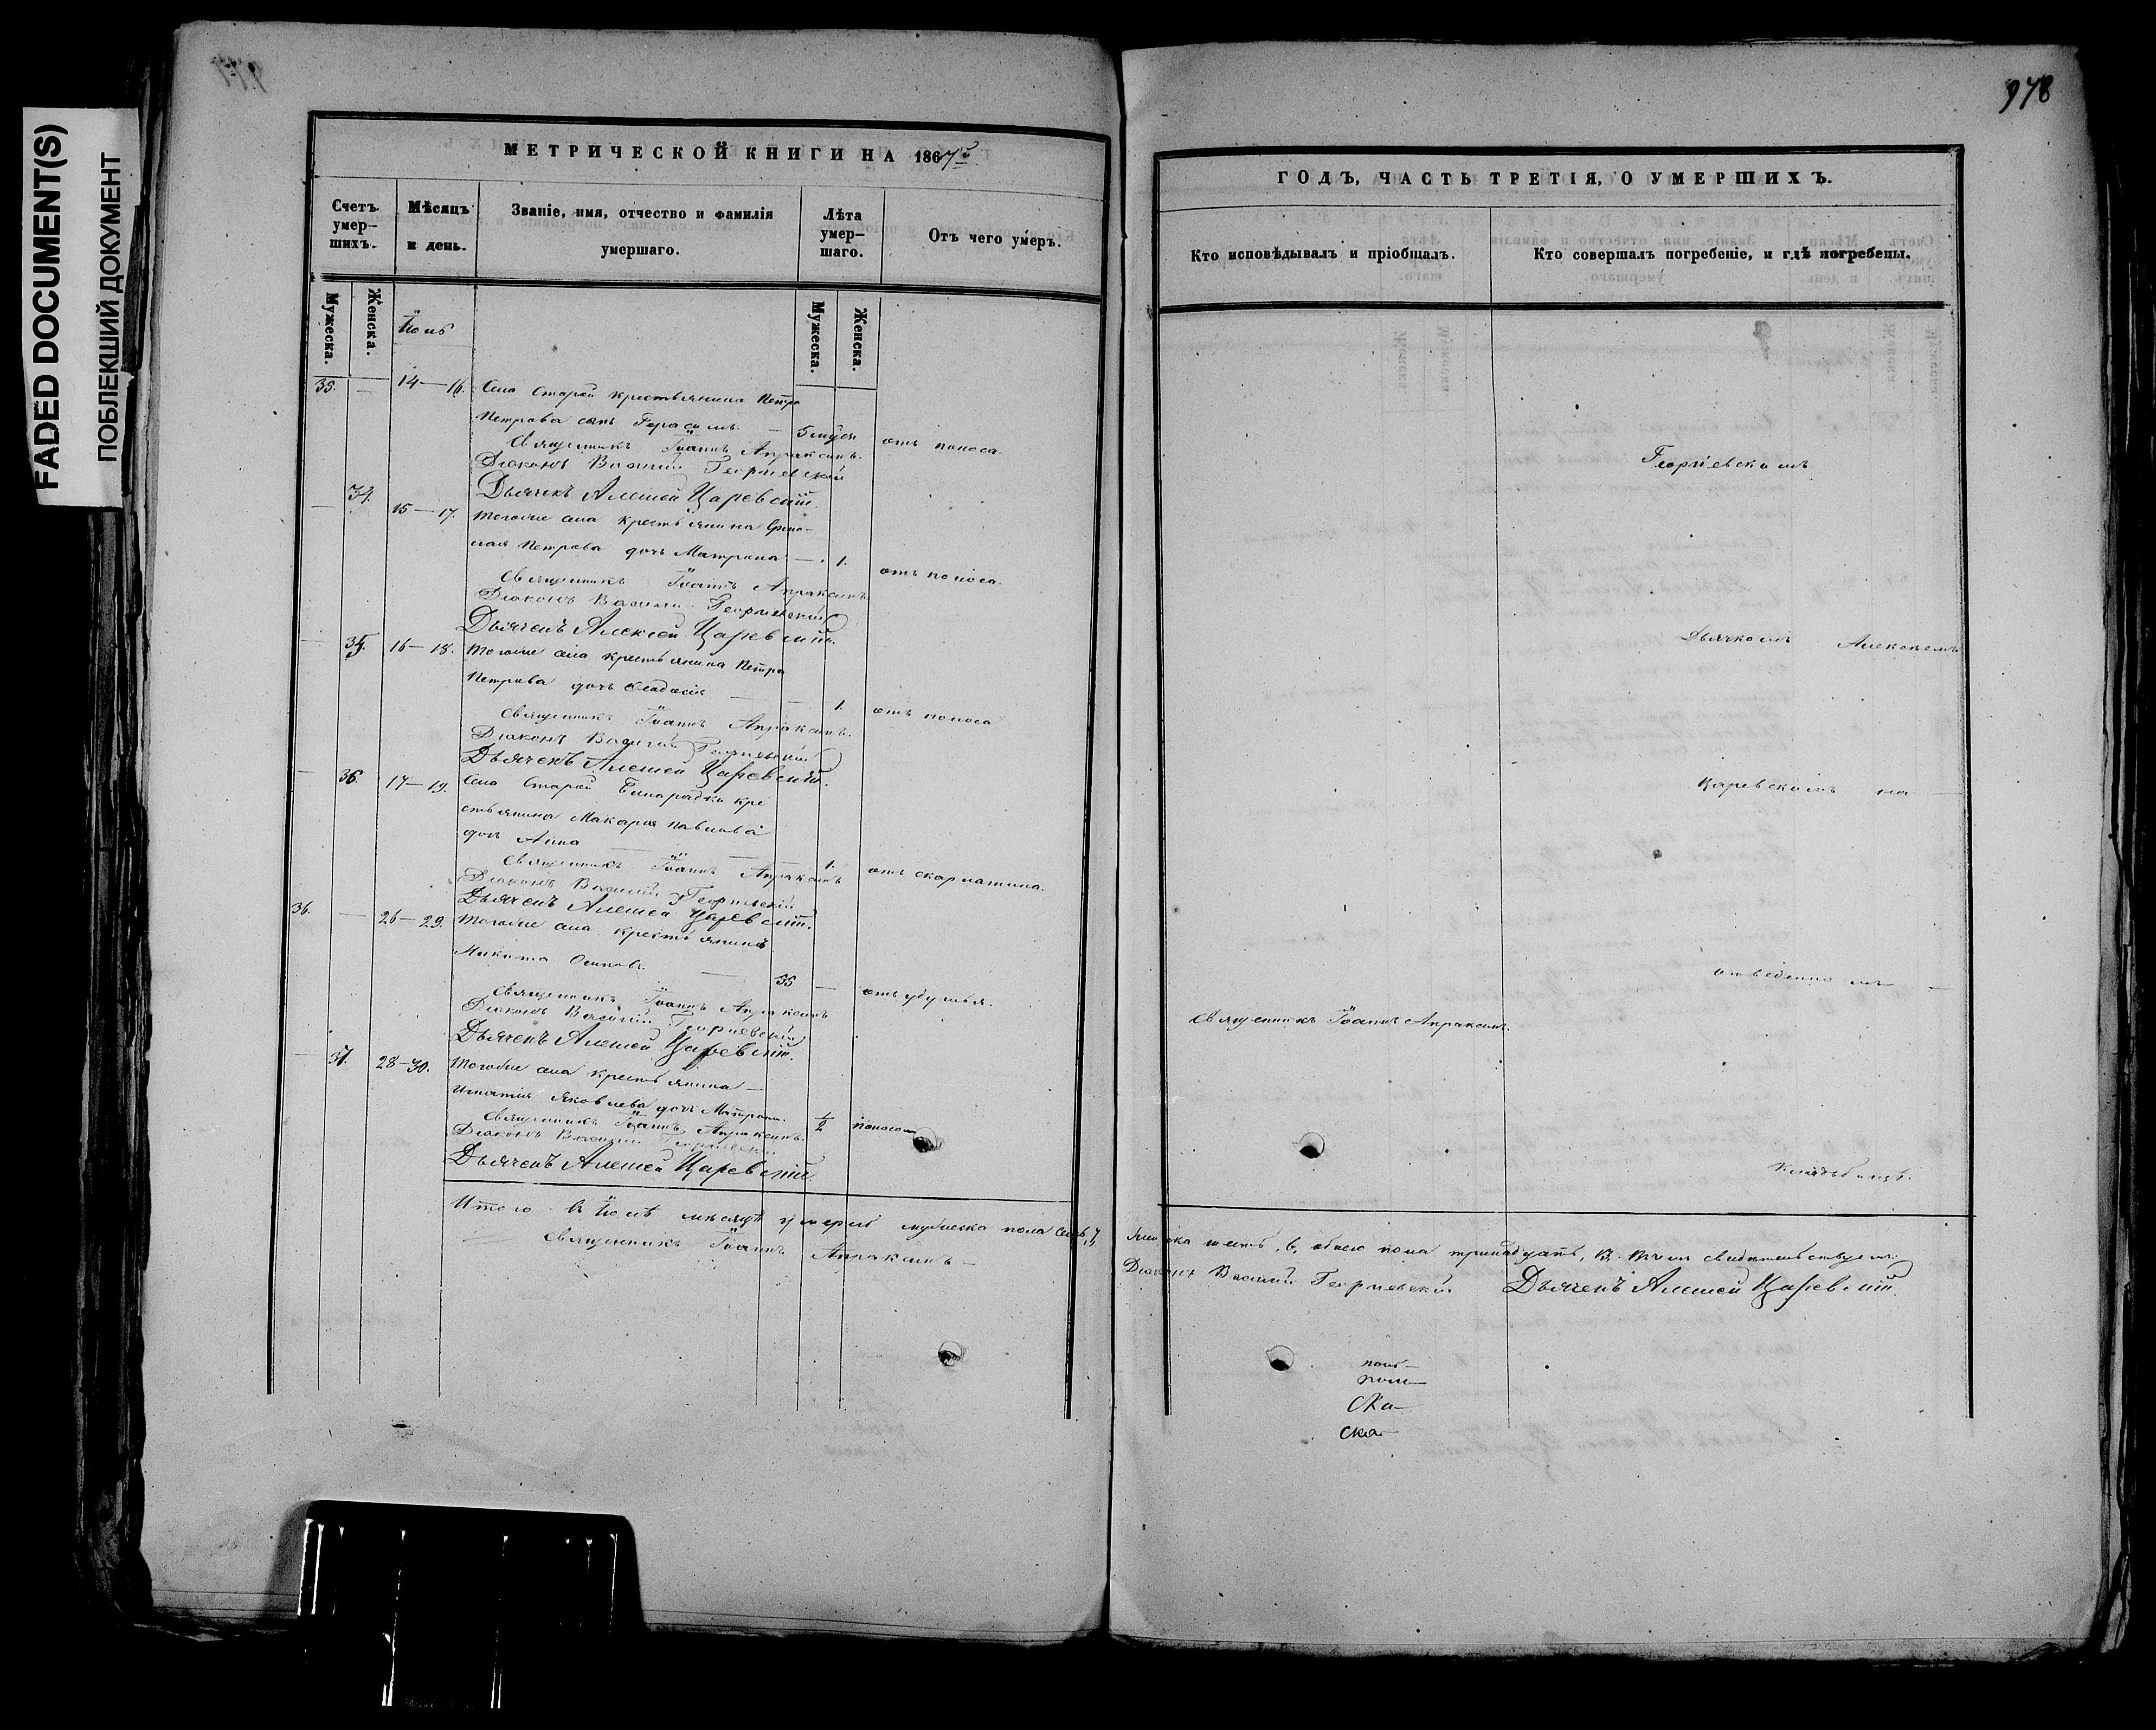 FADED DOCUMENT(S)
ПОБЛЕКШИЙ ДОКУМЕНТ
978
МЕТРИЧЕСКОЙ КНИГИ НА 1867й
ГОДЪ, ЧАСТЬ ТРЕТІЯ, О УМЕРШИХЪ.
Счетъ умер-шихъ.
Мѣсяцъ и день.
Званіе, имя, отчество и фамилія умершаго.
Лѣта умер-шаго.
Отъ чего умеръ.
Кто исповѣдывалъ и пріобщалъ.
Кто совершалъ погребеніе, и гдѣ погребены.
Мужеска.
Женска.
Мужеска.
Женска.
Іюль
35. — 14—16. Села Старой крестьянина Петра
Петрова сынъ Герасимъ — отъ поноса.
Священникъ Іоаннъ Апраксинъ.
Діаконъ Василій Георгіевскій
Дьячекъ Алексей Царевскій.
— 34. 15—17. Тогоже села крестьянина
Петрова дочь Матрона — 1. отъ поноса.
Священникъ Іоаннъ Апраксинъ
Діаконъ Василій Георгіевскій
Дьячекъ Алексей Царевскій.
— 35. 16—18. Тогоже села крестьянина Петра
Петрова дочь — 1. отъ поноса
Священникъ Іоаннъ Апраксинъ.
Діаконъ Василій Георгіевскій
Дьячекъ Алексей Царевскій.
— 36. 17—19. Села Старой Бинарадки кре
стьянина Макарія Павлова
дочь Анна — 1. отъ скарлатина.
Священникъ Іоаннъ Апраксинъ
Діаконъ Василій Георгіевскій
Дьячекъ Алексей Царевскій.
36. — 26—29. Тогоже села крестьянинъ
Никита Осиповъ. — 55 — отъ удушья.
Священникъ Іоаннъ Апраксинъ
Діаконъ Василій Георгіевскій
Дьячекъ Алексей Царевскій.
— 37. 28—30. Тогоже села крестьянина —
Игнатія Яковлева дочь Матрона. 1/2 поносом
Священникъ Іоаннъ Апраксинъ.
Діаконъ Василій Георгіевскій
Дьячекъ Алексей Царевскій.
Георгіевскомъ
Дьячкомъ Алексеемъ
Царевскимъ на —
отведенномъ —
Священникъ Іоаннъ Апраксинъ.
кладбищѣ.
Итого въ Іюлѣ мѣсяцѣ умерло мужеска пола семь, 7,
женска шесть, 6, обоего пола тринадцать, 13. въ чемъ свидѣтельствуемъ:
Священникъ Іоаннъ Апраксинъ —
Діаконъ Василій Георгіевскій Дьячекъ Алексей Царевскій
ска—
ска—